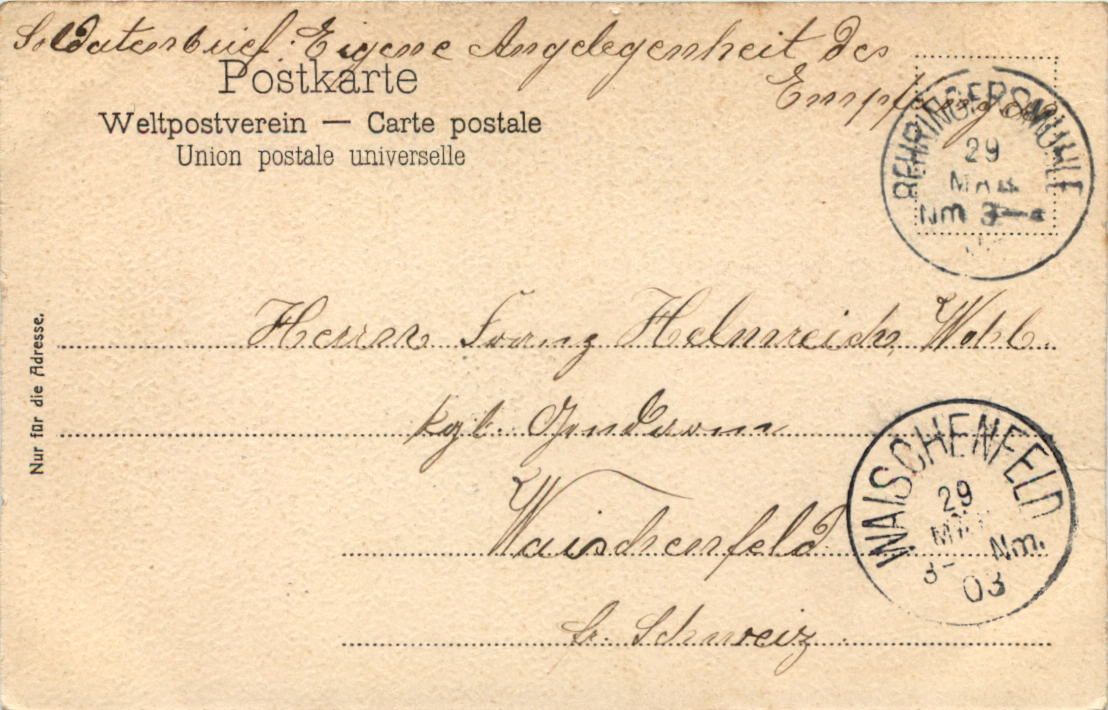 Soldatenbrief. Eigene Angelegenheit des
Empfängers
Postkarte
Weltpostverein — Carte postale
Union postale universelle
BEHRINGERSMÜHLE
29
MAR
Nm 3-4
Nur für die Adresse.
Herrn Franz Helmreich, Wohl.
kgl. Gendarm
Waischenfeld
fr. Schweiz
WAISCHENFELD
29
Nm.
3-
03